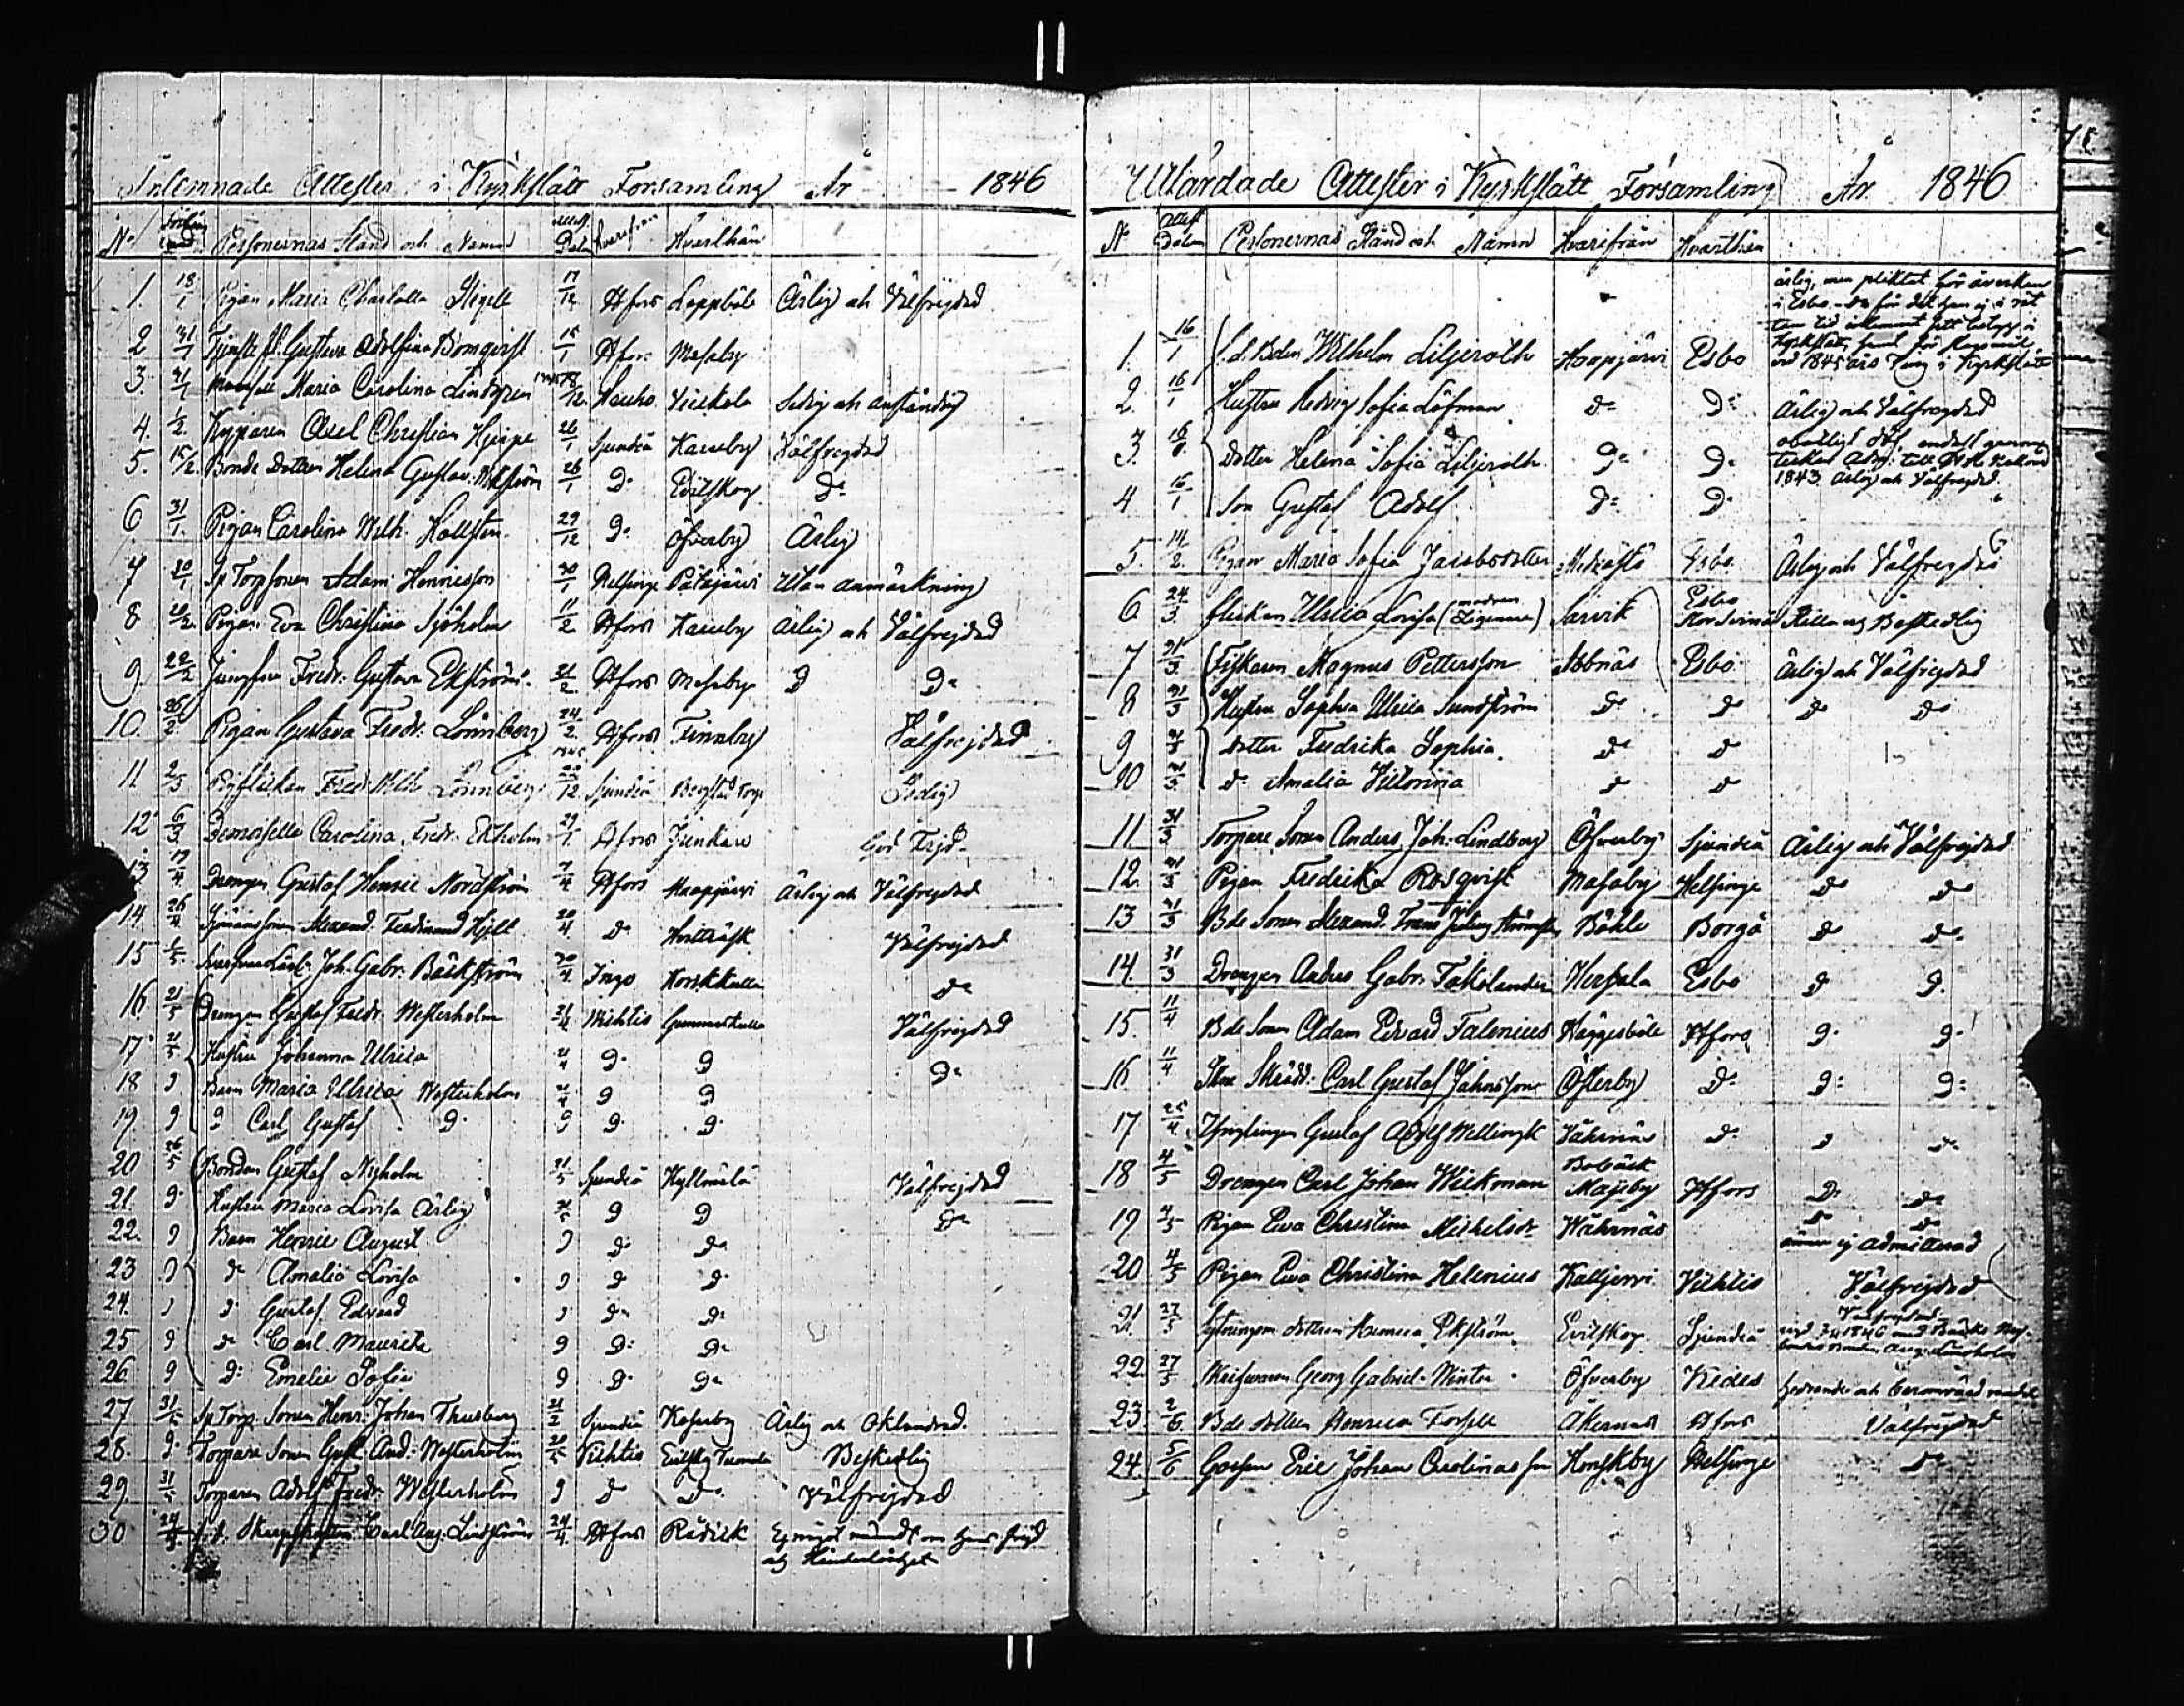 Inlemnade Attester i Kyrkslätt Församling År 1846
No Personernas Stånd och Namn Attest. Datum Hvarifrån Hvarthän
1. 18/1 Pigan Maria Charlotta Stegell 17/12 Hfors Loppböle Ärlig och Välfrejdad
2 31/1 Gustava Adolfina Blomqvist 15/1 Hfors Masaby
3. 31/1 Mamsell Maria Carolina Lindgren 18/12 Hauho Veikkola Sedig och anständig
4. 1/2 Kyparen Axel Christian Hjerpe 26/1 Sjundeå Kauseby Välfrejdad
5. 15/2 Bonde Dottren Helena Gustav. Wikström 26/1 Do Evitskog Do
6 31/1 Pigan Carolina Wilh. Hallsten 29/12 Do Öfverby Ärlig
7 30/1 Sp Torpsonen Adam Henricsson 30/1 Helsinge Pätsjärvi Utan anmärkning
8 20/2 Pigan Eva Christina Sjöholm 11/2 Hfors Kauseby Ärlig och Välfrejdad
9. 22/2 Jungfrun Fredr. Gustava Ekström 21/2 Hfors Masaby D Do
10. 26/2 Pigan Gustava Fredr. Lönnberg 24/2 Hfors Finnby Välfrejdad
11 2/3 Pigflickan Fred. Wilh. Lönnberg 12 Sjundeå Bergstad Torp Sedig
12 6/3 Demoiselle Carolina Fredr. Ekholm 29/1 Hfors Junkars God Frejd
13 17/4 Drengen Gustaf Henric Nordström 7/4 Hfors Haapjärvi Ärlig och Välfrejdad
14 26/4 Alexand. Ferdinand Hjelt 20/4 Do Välfrejdad
15 1/5 Joh. Gabr. Bäckström 30/4 Ingo Korskulla Do
16 21/5 Drengen Gustaf Fredr. Westerholm 21/4 Wichtis Gunnarskulla Välfrejdad
17 21/5 Hustru Johanna Ulrica 21/4 Do D Do
18 D Barn Maria Ulrica Westerholm 21/4 D D
19 D D Carl Gustaf Do D D D
20 26/5 Bonden Gustaf Nyholm 21/5 Sjundeå Kyllmälä Välfrejdad
21. D Hustru Maria Lovisa Ärlig 21/5 D D Do
22. D Barn Henric August D Do Do
23 D Do Amalia Lovisa D D D
24. D D Gustaf Edvard D Do Do
25 D Do Carl Mauritz D Do Do
26. D Do Emelie Sofia D Do Do
27 31/5 Sp Torp. Sonen Henr. Johan Thusberg 21/2 Sjundeå Kaseby Ärlig och Oklandrad.
28. D Torpare Sonen Gust. And. Westerholm 20/5 Vichtis Evitskog Beskedlig
29. 31/5 Torparen Adolf Fredr. Westerholm D Do Do Välfrejdad
30 24/5 f.d. Carl Aug. Lindström 24/4 Hfors Rådick Ej något om hans frejd
och Hinderlöshet
Utfärdade Attester i Kyrkslätt Församling År 1846
No Attest Datum Personernas Stånd och Namn Hvarifrån Hvarthän
ärlig, men pliktat för åverkan
i Esbo
Kyrkslätt,
vid 1845 års Ting i Kyrkslätt
1. 16/1 f.d. Wilhelm Liljeroth Haapjärvi Esbo
2. 16/1 Hustru Hedvig Sofia Löfman Do Do Ärlig och Välfrejdad
3. 16 Dotter Helena Sofia Liljeroth Do Do
1843 ärlig och Välfrejdad
4 16/1 Son Gustaf Adolf Do Do
5. 14/2 Pigan Maria Sofia Jacobsdotter Esbo Ärlig och Välfrejdad
6 24/3 Flickan Ulrica Lovisa Sarvik Esbo Beskedlig
7 31/3 Fiskaren Magnus Pettersson Abbnäs Esbo Ärlig och Välfrejdad
8 31/3 Hustru Sophia Ulrica Sundström Do Do Do Do
9 31/3 Dotter Fredrika Sophia Do Do
10 31/3 Do Amalia Victorina Do Do
11 31/3 Torpare Sonen Anders Joh. Lindberg Öfverby Sjundeå Ärlig och Välfrejdad
12. 31/3 Pigan Fredrika Rosqvist Masaby Helsinge Do Do
13 31/3 Bde Sonen Alexand. Frans Böhle Borgå Do Do
14. 31/3 Drengen Anders Gabr. Falkolander Hersala Esbo Do D.
15. 11/4 Bde Sonen Adam Edvard Falenius Häggesböle Hfors D D
16 11/4 Skrädd. Carl Gustaf Jahnsson Österby Do Do Do
17 25/4 Ynglingen Gustaf Adolf Wellingk Våhrnäs Do D Do
18 4/5 Drengen Carl Johan Wickman Bobäck Masaby Hfors Do Do
19 4/5 Pigan Eva Christina Michelsdr Wåhrnäs Do
ännu ej admitterad
20 4/5 Pigan Eva Christina Helenius Kalljervi Vichtis Välfrejdad
21. 27/5 dottren Henrica Ekström Evitskog Sjundeå Välfrejdad
22. 27/5 Georg Gabriel Winter Öfverby Kides hedrande och berömvärd vandel
23 2/6 Bde dottren Henrica Forsell Åkernäs Hfors Välfrejdad
24. 5/6 Gossen Eric Johan Carolinas son Honskby Helsinge Do